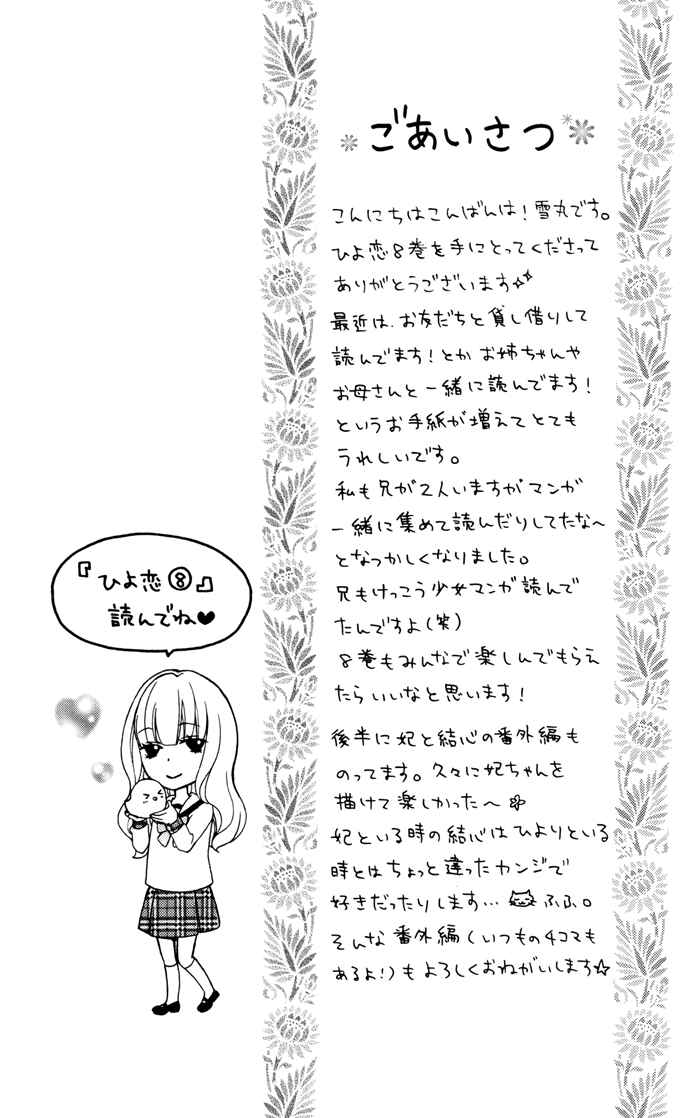 ごあいさつ
こんにちはこんばんは！雪丸です。
ひよ恋8巻を手にとってくださって
ありがとうございます☆
最近は、お友だちと貸し借りして
読んでます！とかお姉ちゃんや
お母さんと一緒に読んでます！
というお手紙が増えてとても
うれしいです。
私も兄が2人いますがマンガ
一緒に集めて読んだりしてたな〜
となつかしくなりました。
兄もけっこう少女マンガ読んで
たんですよ（笑）
8巻もみんなで楽しんでもらえ
たらいいなと思います！
後半に妃と結心の番外編も
のってます。久々に妃ちゃんを
描けて楽しかった〜
妃といる時の結心はひよりといる
時とはちょっと違ったカンジで
好きだったりします…ふふ。
そんな番外編（いつもの4コマも
あるよ！）もよろしくおねがいします☆
『ひよ恋⑧』
読んでね♥